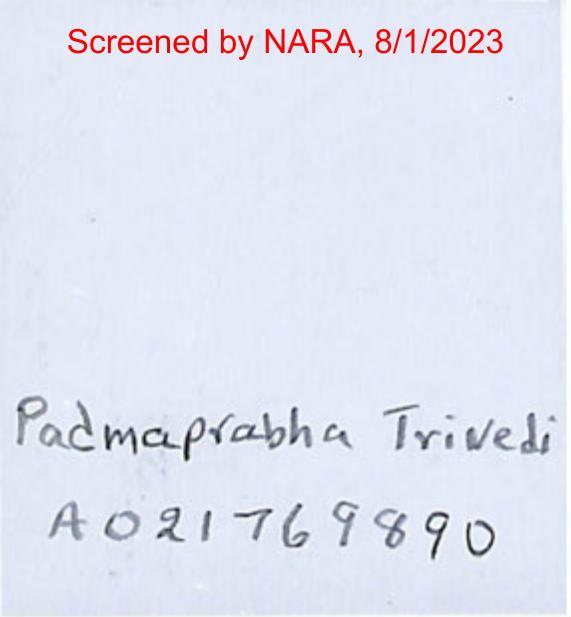 Screened by NARA, 8/1/2023
Padmaprabha Trivedi
A021769890